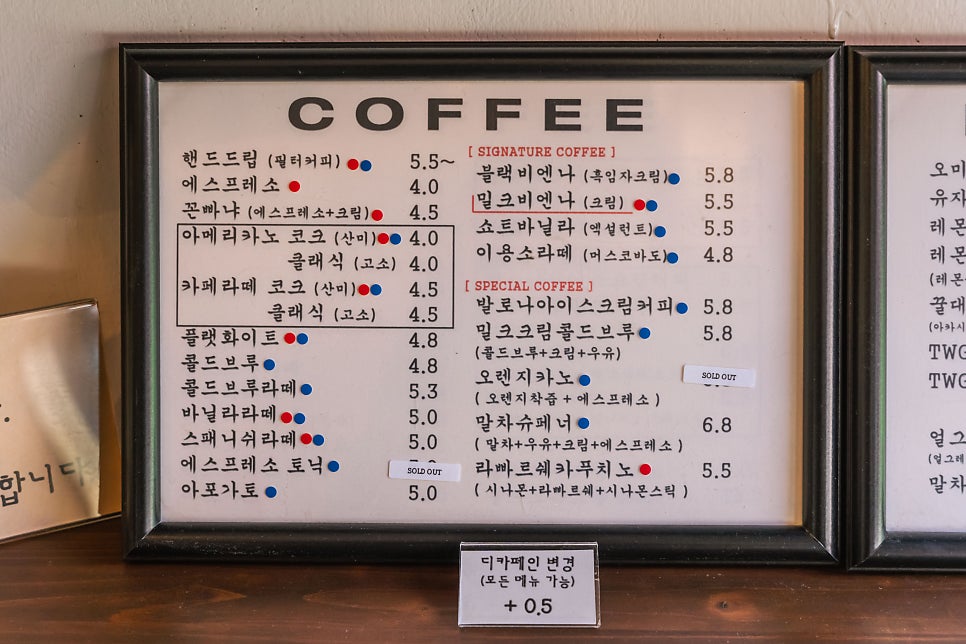 COFFEE
핸드드립 (필터커피) 5.5~
에스프레소 4.0
꼰빠냐 (에스프레소+크림) 4.5
아메리카노 코크 (산미) 4.0
클래식 (고소) 4.0
카페라떼 코크 (산미) 4.5
클래식 (고소) 4.5
플랫화이트 4.8
콜드브루 4.8
콜드브루라떼 5.3
바닐라라떼 5.0
스패니쉬라떼 5.0
에스프레소 토닉 SOLD OUT
아포가토 5.0
[ SIGNATURE COFFEE ]
블랙비엔나 (흑임자크림) 5.8
밀크비엔나 (크림) 5.5
쇼트바닐라 (엑설런트) 5.5
이용소라떼 (머스코바도) 4.8
[ SPECIAL COFFEE ]
발로나아이스크림커피 5.8
밀크크림콜드브루 5.8
(콜드브루+크림+우유)
오렌지카노 SOLD OUT
( 오렌지착즙 + 에스프레소 )
말차슈페너 6.8
( 말차+우유+크림+에스프레소 )
라빠르쉐카푸치노 5.5
( 시나몬+라빠르쉐+시나몬스틱 )
디카페인 변경
(모든 메뉴 가능)
+ 0.5
합니다
오미
유자
레몬
레몬
(레몬
꿀대
(아카시
TWG
TWG
얼그
(얼그레
말차